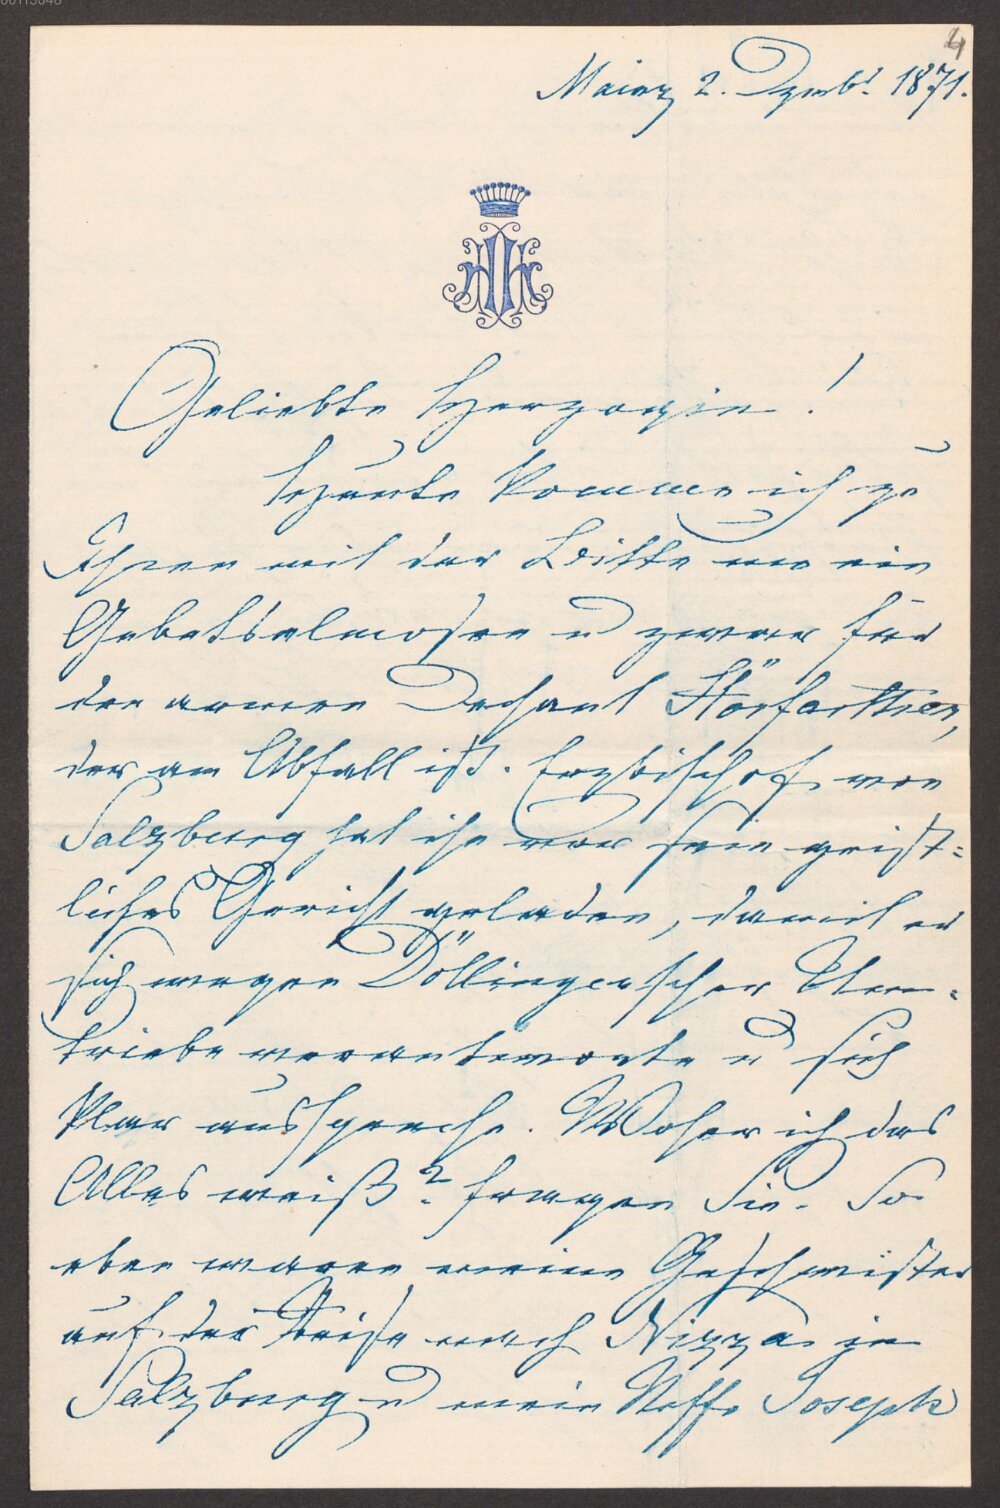 00113048
4
Mainz 2. Dezmb. 1871.
Geliebte Herzogin!
Heute komme ich zu
Ihnen mit der Bitte um ein
Gebetsalmosen u zwar für
den armen Dechant
der am Abfall ist. Erzbischof von
Salzburg hat ihn vor sein geist=
liches Gericht geladen, damit er
sich wegen Döllingerscher Um=
triebe verantworte u sich
klar ausspreche. Woher ich das
Alles weiß? fragen Sie. So
eben waren meine Geschwister
auf der Reise nach Nizza in
Salzburg u mein Neffe Joseph